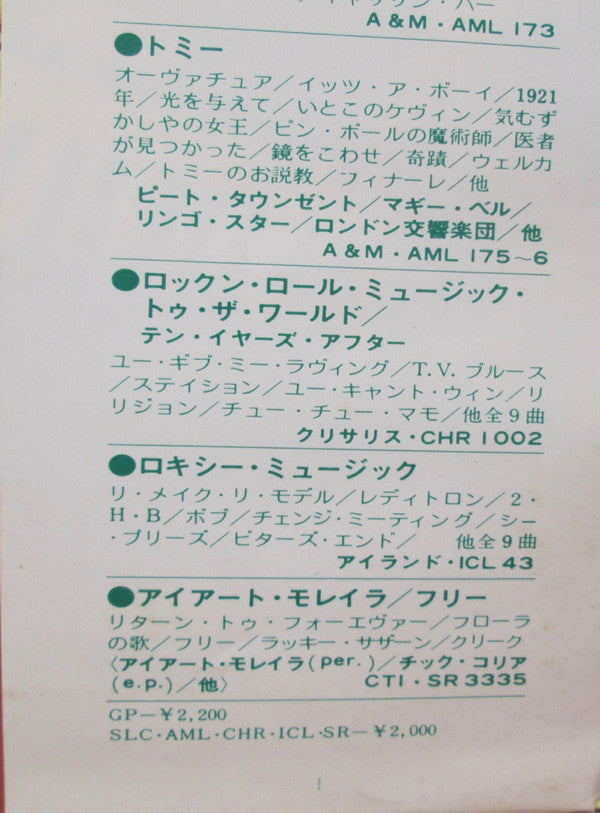 A & M・AML 173
●トミー
オーヴァチュア／イッツ・ア・ボーイ／1921
年／光を与えて／いとこのケヴィン／気むず
かしやの女王／ピン・ボールの魔術師／医者
が見つかった／鏡をこわせ／奇蹟／ウェルカ
ム／トミーのお説教／フィナーレ／他
ピート・タウンゼント／マギー・ベル／
リンゴ・スター／ロンドン交響楽団／他
A & M・AML 175〜6
●ロックン・ロール・ミュージック・
トゥ・ザ・ワールド／
テン・イヤーズ・アフター
ユー・ギブ・ミー・ラヴィング／T.V. ブルース
／ステイション／ユー・キャント・ウィン／リ
リジョン／チュー・チュー・マモ／他全9曲
クリサリス・CHR 1002
●ロキシー・ミュージック
リ・メイク・リ・モデル／レディトロン／2・
H・B／ボブ／チェンジ・ミーティング／シー
・ブリーズ／ビターズ・エンド／ 他全9曲
アイランド・ICL 43
●アイアート・モレイラ／フリー
リターン・トゥ・フォーエヴァー／フローラ
の歌／フリー／ラッキー・サザーン／クリーク
〈アイアート・モレイラ(per.)／チック・コリア
(e.p.)／他〉 CTI・SR 3335
GP－¥2,200
SLC・AML・CHR・ICL・SR－¥2,000